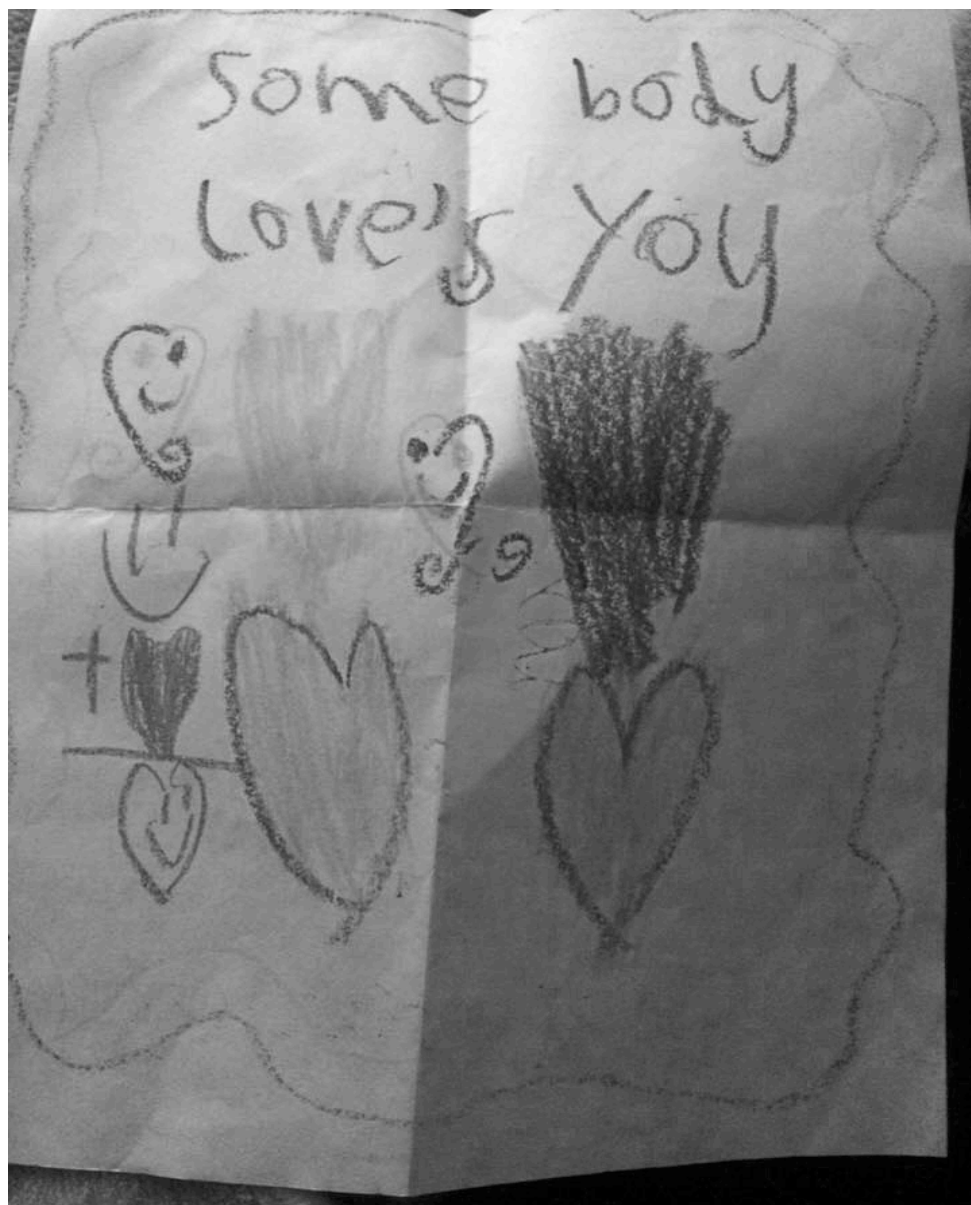 Some body
Love's YOY